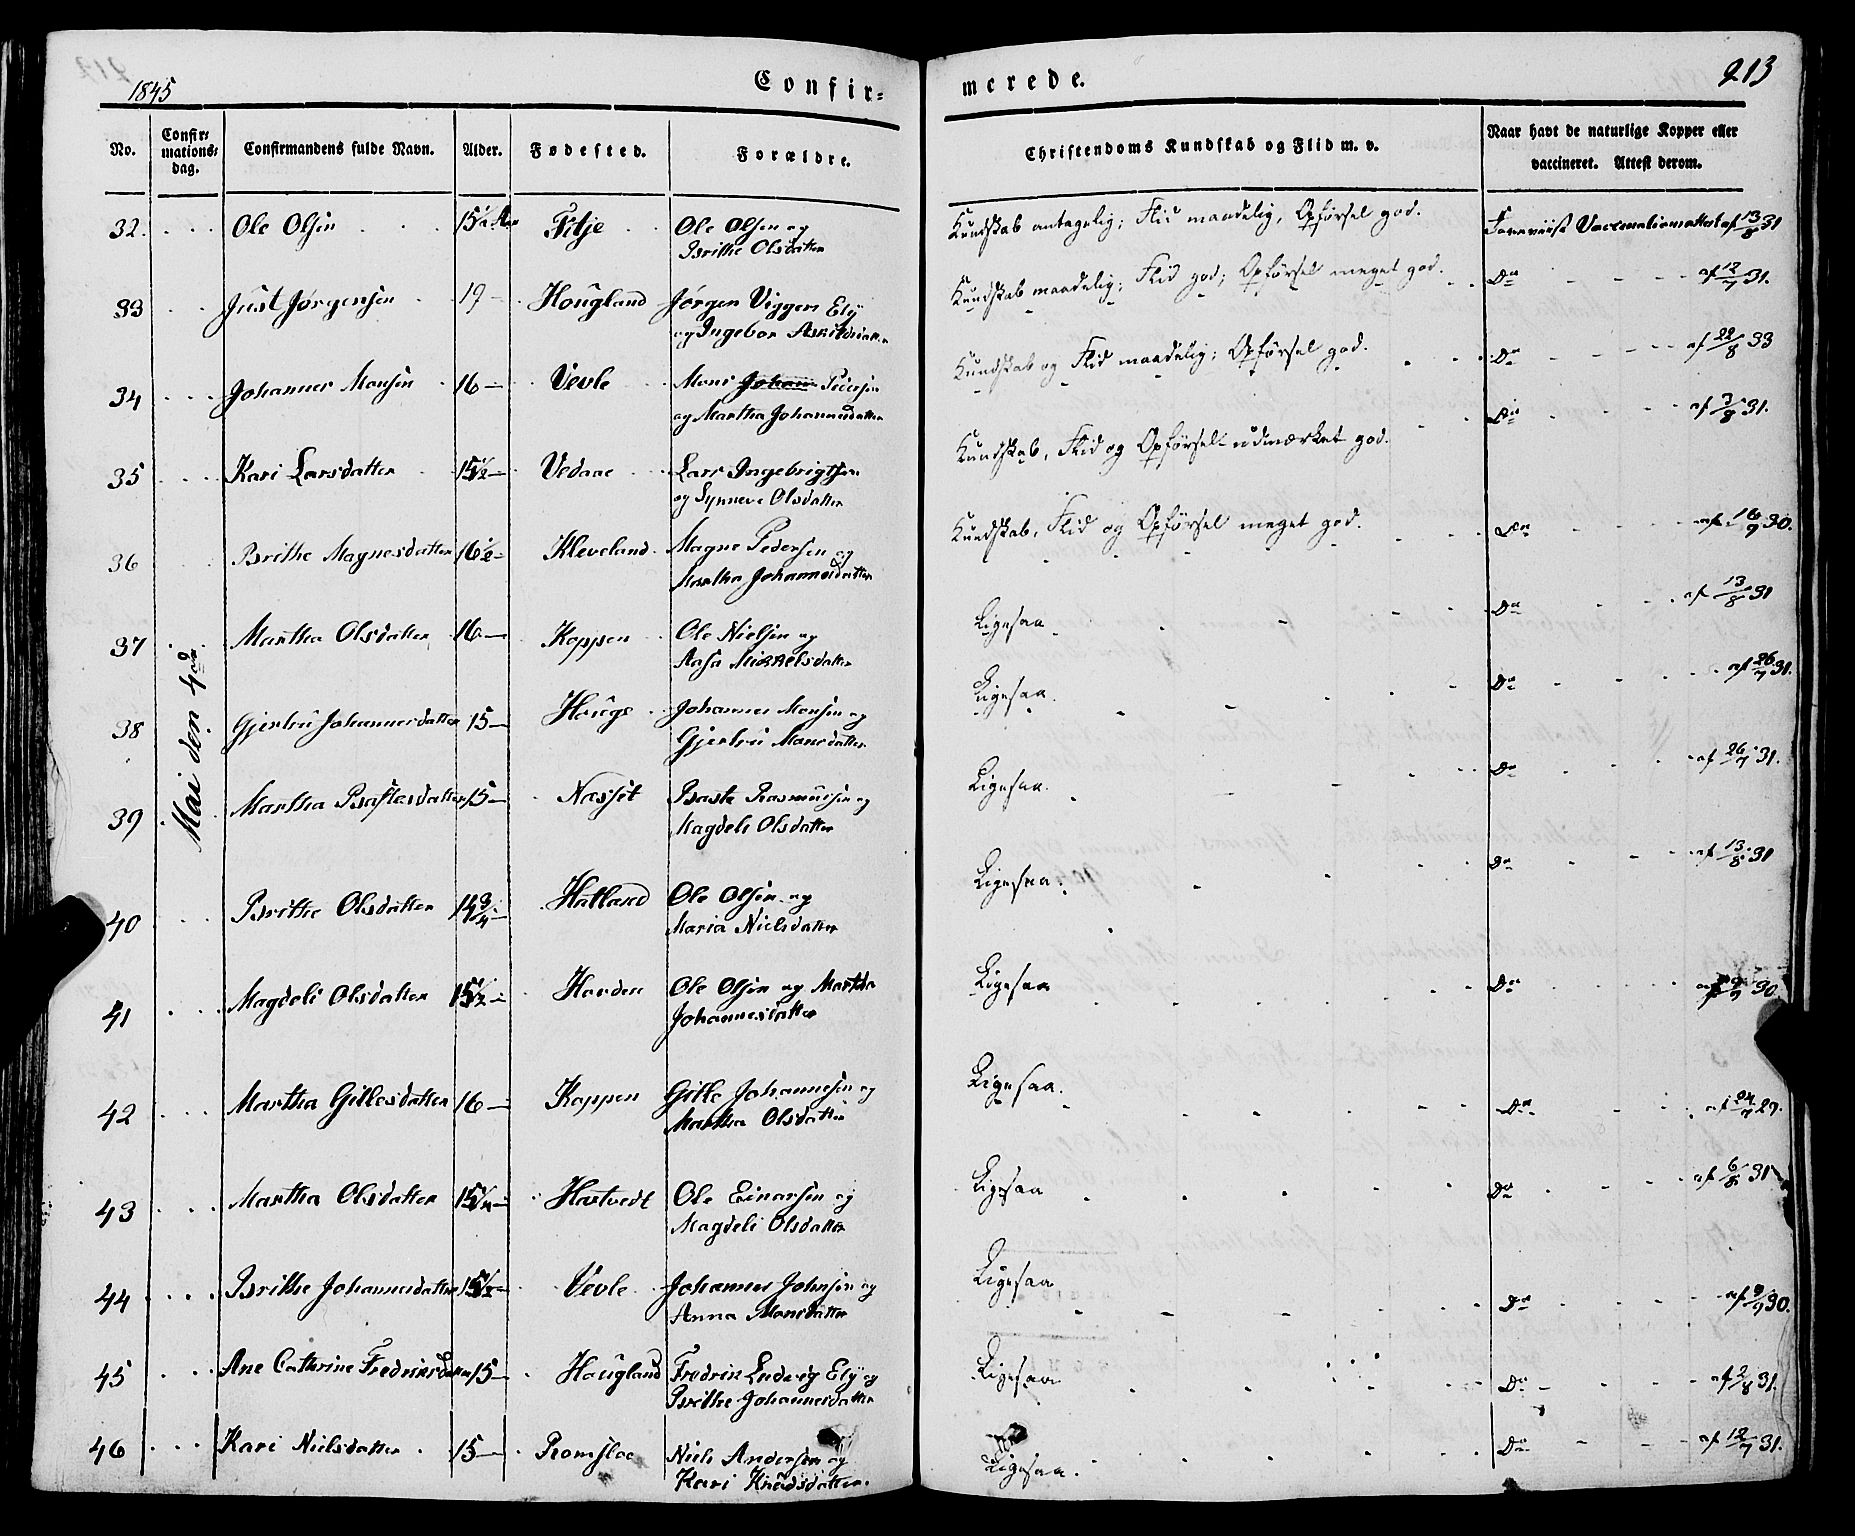 1845
Confir=
merede.
213
No.
Confir=
mations=
dag.
Confirmandens fulde Navn.
Alder.
Fødested.
Forældre.
Christendoms Kundskab og Flid m. v.
Naar havt de naturlige Kopper eller
vaccineret. Attest derom.
Mai den 4de
32. Ole Olsen 15½ Fitje Ole Olsen og Kundskab antagelig; Flid maadelig, Opførsel god. Vaccinationsattest af 13/8 31
Brithe Olsdatter
33 Just Jørgensen 19 - Hougland Jørgen Viggers Ely Kundskab maadelig; Flid god; Opførsel meget god. Do af 12/7 31.
og Ingebor Askildsdatter
34 Johannes Monsen 16 - Vevle Mons Johan Pedersen Kundskab og Flid maadelig; Opførsel god. Do af 22/8 33
og Martha Johannesdatter
35 Kari Larsdatter 15½ - Vedaae Lars Ingebrigtsen Kundskab, Flid og Opførsel udmærket god. Do af 3/8 31.
og Synneve Olsdatter
36 Brithe Magnesdatter 16½ - Kleveland Magne Pedersen og Kundskab, Flid og Opførsel meget god. Do af 16/9 30.
Martha Johannesdatter
37 Martha Olsdatter 16 - Koppen Ole Nielsen og Ligesaa Do af 13/8 31
Aasa Mikkelsdatter
38 Gjertru Johannesdatter 15 - Houge Johannes Monsen og Ligesaa. Do af 26/7 31.
Gjertru Monsdatter
39 Martha Brastesdatter 15 - Næsset Braste Rasmussen og Ligesaa. Do af 26/7 31.
Magdeli Olsdatter
40 Brithe Olsdatter 14¾ - Hatland Ole Olsen og Ligesaa. Do af 13/8 31
Maria Nielsdatter
41 Magdeli Olsdatter 15½ - Ole Olsen og Martha Ligesaa Do 30.
Johannesdatter
42 Martha Gillesdatter 16 - Koppen Gille Johannesen og Ligesaa. Do af 24/7 29.
Martha Olsdatter
43 Martha Olsdatter Hartvedt Ole Einarsen og Ligesaa Do af 6/8 31
Magdeli Olsdatter
44 Brithe Johannesdatter 15½ - Vevle Johannes Johnsen og Ligesaa Do 30.
Anna Monsdatter
45 Ane Cathrine Fredriksdatter 15 - Haugland Fredrik Ludvig Ely og Ligesaa Do 31.
Brithe Johannesdatter
46 Kari Nielsdatter 15 - Romsloe Niels Andersen og Ligesaa. Do af 12/7 31.
Kari Knudsdatter.